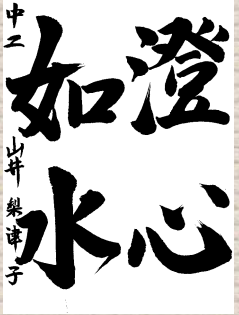 澄心
如水
中二 山井梨津子